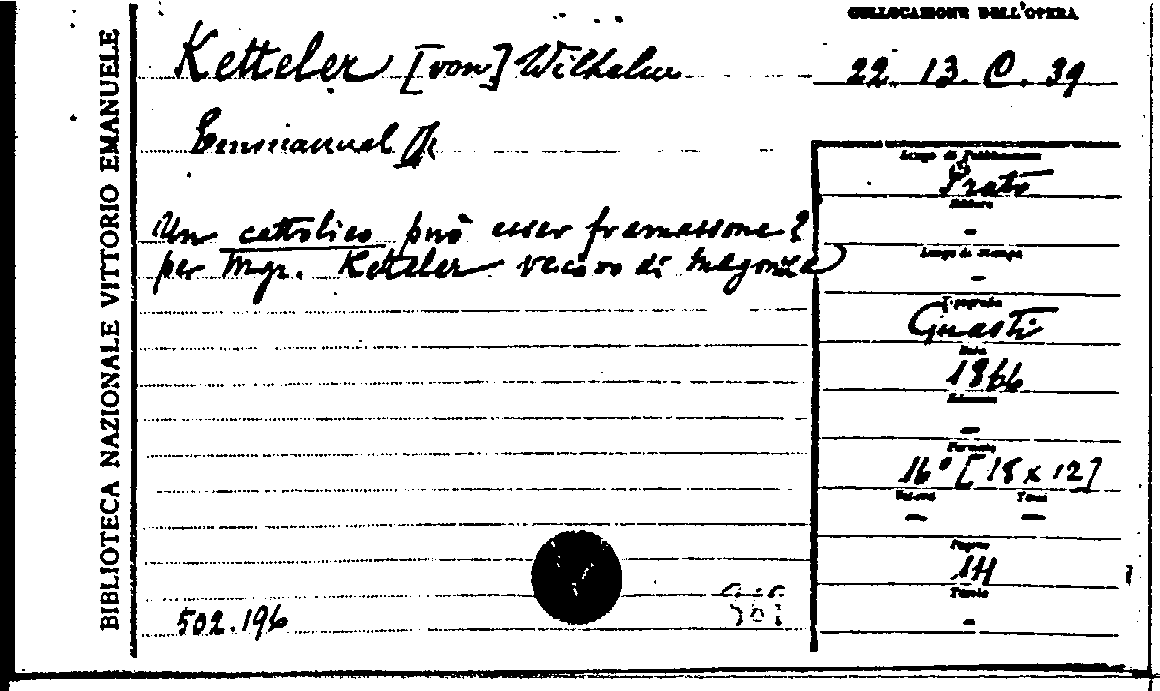 COLLOCAZIONE DELL'OPERA
BIBLIOTECA NAZIONALE VITTORIO EMANUELE
Ketteler [von] Wilhelm
22. 13. C. 39
Emmanuel
Luogo di Pubblicazione
Prato
Editore
-
Un cattolico può esser framassone?
per Mgr. Ketteler vescovo di Magonza
Luogo di stampa
-
Tipografia
Guasti
Data
1866
Edizione
-
Formato
16° [18 x 12]
Volumi Tomi
- -
Pagine
14
Tavole
-
502.196